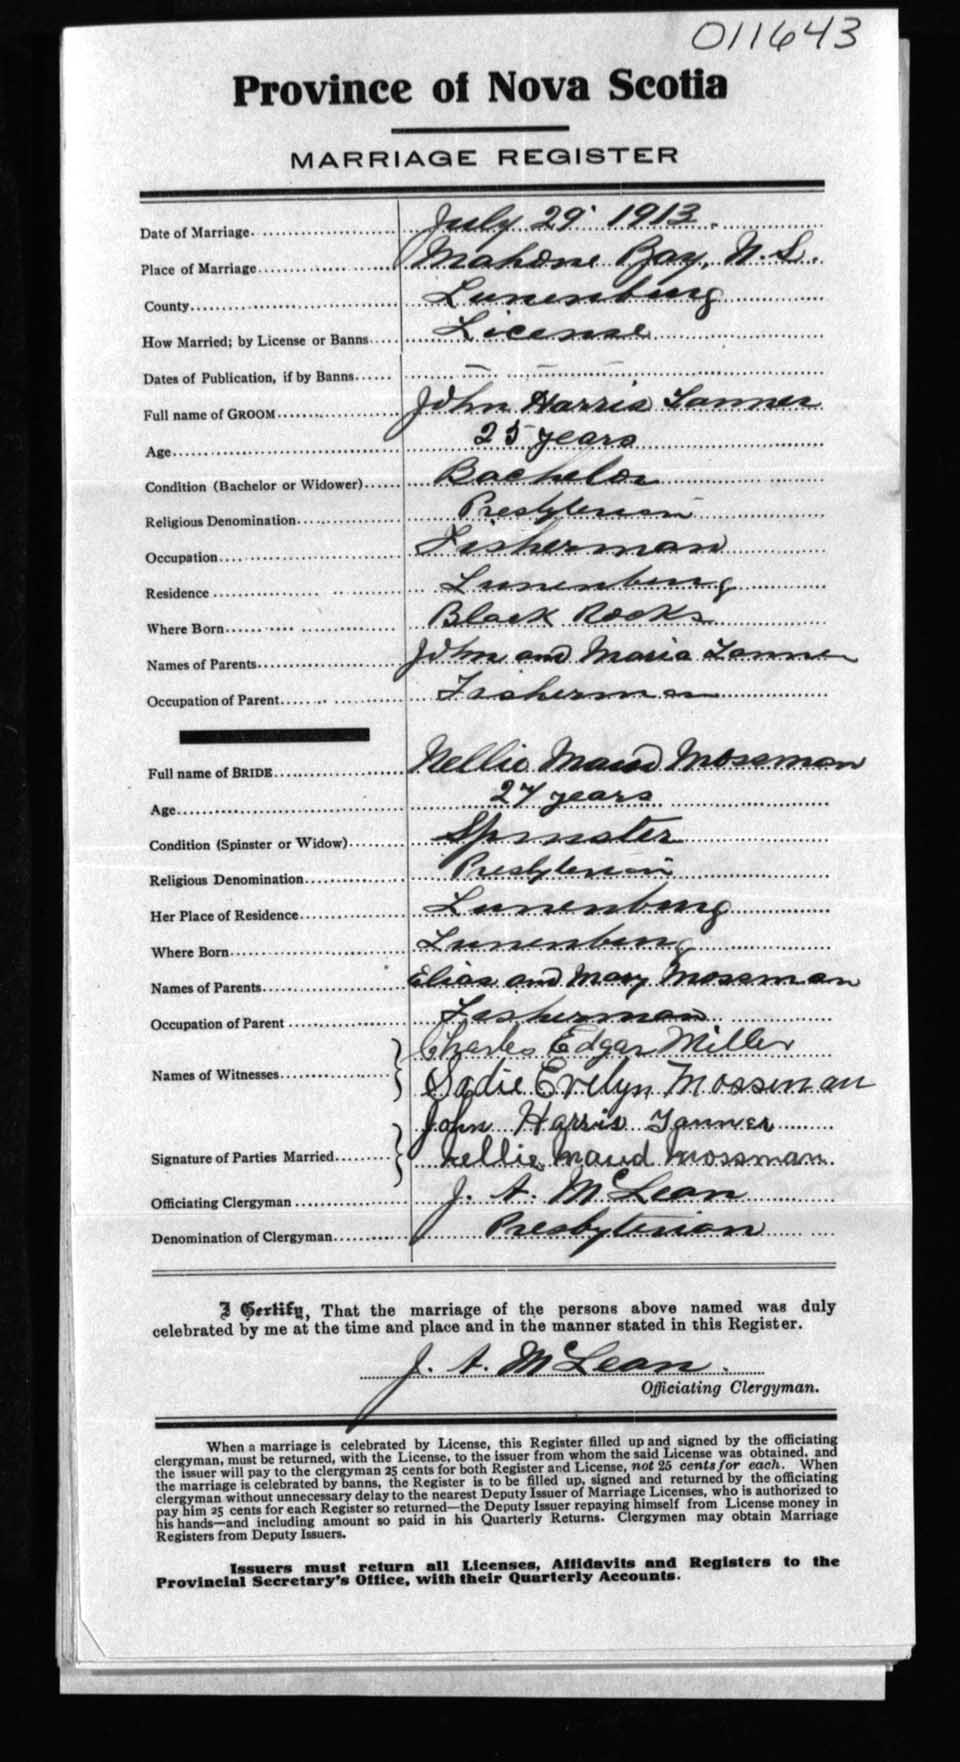 011643
Province of Nova Scotia
MARRIAGE REGISTER
Date of Marriage July 29 1913.
Place of Marriage Mahone Bay, N.S.
County Lunenburg
How Married; by License or Banns License
Dates of Publication, if by Banns
Full name of GROOM John Harris Tanner
Age 25 years
Condition (Bachelor or Widower) Bachelor
Religious Denomination Presbyterian
Occupation Fisherman
Residence Lunenburg
Where Born Black Rocks
Names of Parents John and Maria Tanner
Occupation of Parent Fisherman
Full name of BRIDE Nellie Maud Mossman
Age years
Condition (Spinster or Widow) Spinster
Religious Denomination Presbyterian
Her Place of Residence Lunenburg
Where Born Lunenburg
Names of Parents Elias and Mary Mossman
Occupation of Parent Fisherman
Names of Witnesses Charles Edgar Miller
Sadie Evelyn Mossman
Signature of Parties Married John Harris Tanner
Nellie Maud Mossman.
Officiating Clergyman J. A. McLean
Denomination of Clergyman Presbyterian
I Certify, That the marriage of the persons above named was duly
celebrated by me at the time and place and in the manner stated in this Register.
J. A. McLean.
Officiating Clergyman.
When a marriage is celebrated by License, this Register filled up and signed by the officiating
clergyman, must be returned, with the License, to the issuer from whom the said License was obtained, and
the issuer will pay to the clergyman 25 cents for both Register and License, not 25 cents for each. When
the marriage is celebrated by banns, the Register is to be filled up, signed and returned by the officiating
clergyman without unnecessary delay to the nearest Deputy Issuer of Marriage Licenses, who is authorized to
pay him 25 cents for each Register so returned—the Deputy Issuer repaying himself from License money in
his hands—and including amount so paid in his Quarterly Returns. Clergymen may obtain Marriage
Registers from Deputy Issuers.
Issuers must return all Licenses, Affidavits and Registers to the
Provincial Secretary's Office, with their Quarterly Accounts.